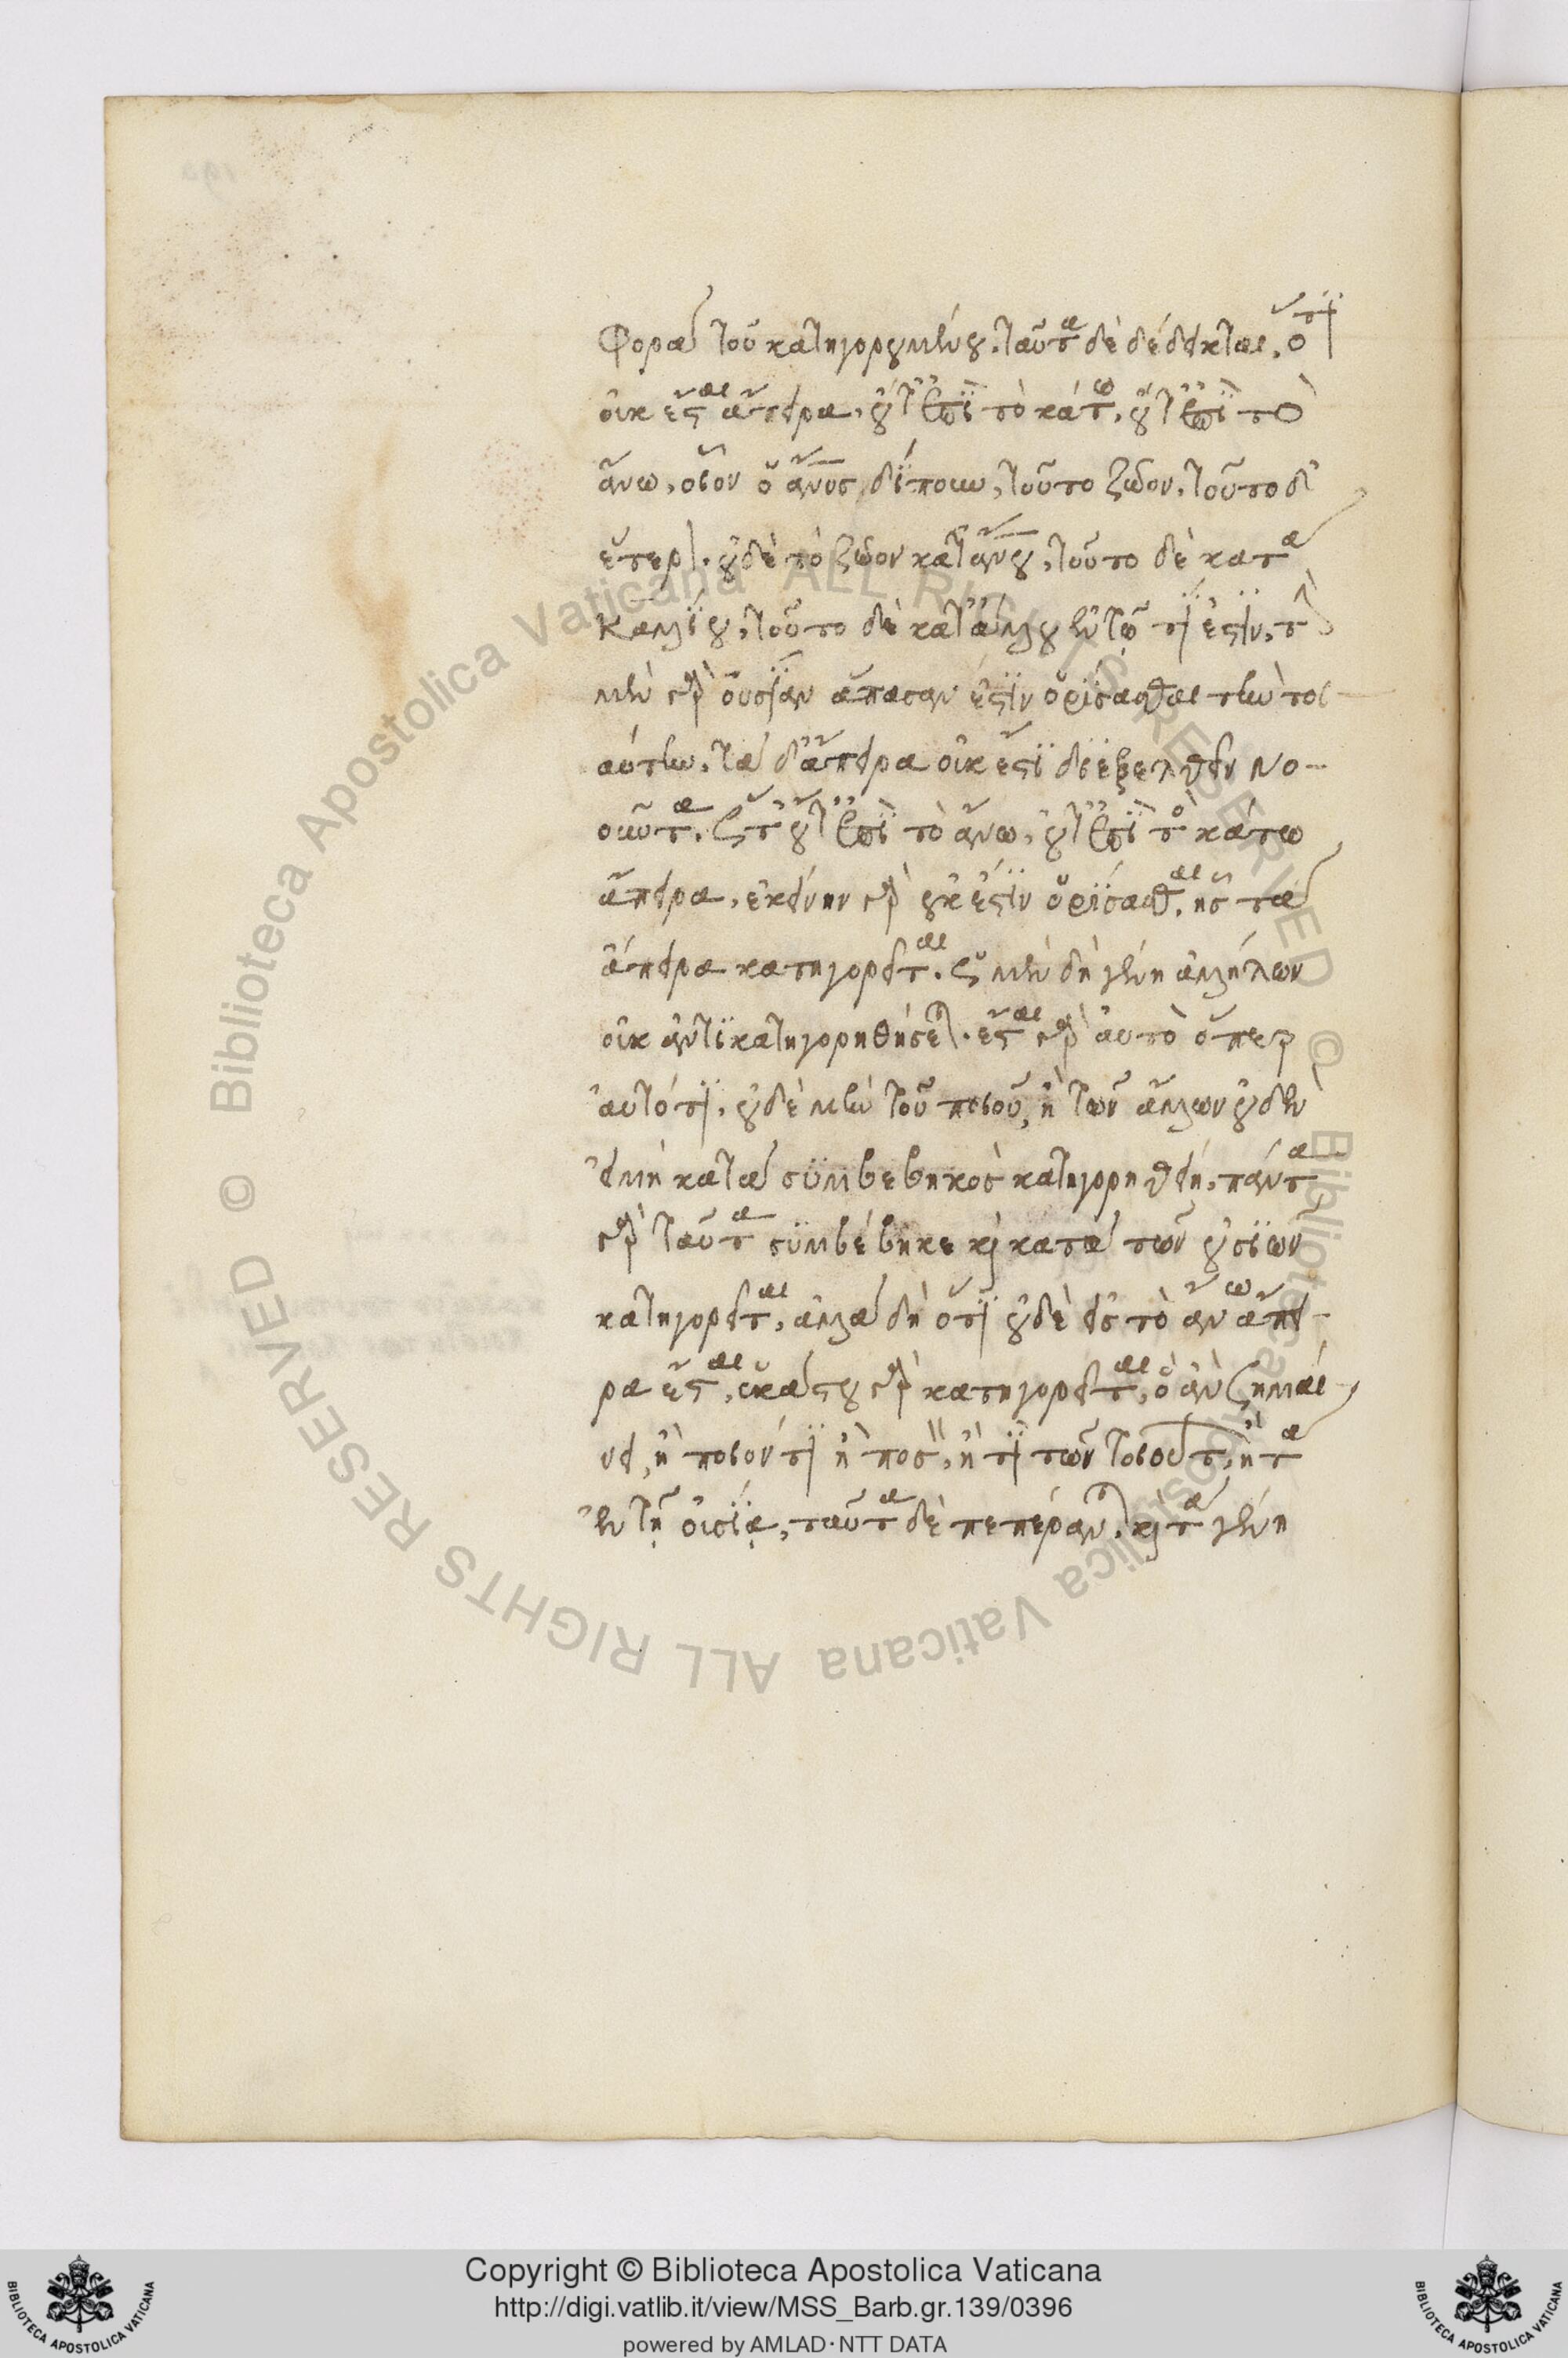 φορὰ τοῦ κατηγορουμένου. ταῦτα δὲ δέδεικται, ὅτι
οὐκ ἔσται ἄπειρα, οὔτ' ἐπὶ τὸ κάτω, οὔτ' ἐπὶ τὸ
ἄνω, οἷον ὁ ἄνος δίπουν, τοῦτο ζῶον, τοῦτο δ'
ἕτερον. οὐδὲ τὸ ζῶον κατ' ἀνου, τοῦτο δὲ κατὰ
Καλλίου, τοῦτο δὲ κατ' ἄλλου ἐν τῷ τί ἐστιν, τὴν
μὲν γὰρ οὐσίαν ἅπασαν ἔστιν ὁρίσασθαι τὴν τοι
αύτην. τὰ δ' ἄπειρα οὐκ ἔστι διεξελθεῖν νο-
οῦντα. ὥστ' οὔτ' ἐπὶ τὸ ἄνω, οὔτ' ἐπὶ τὸ κάτω
ἄπειρα, ἐκείνην γὰρ οὐκ ἔστιν ὁρίσασθαι, ἧς τὰ
ἄπειρα κατηγορεῖται. ὡς μὲν δὴ γένη ἀλλήλων
οὐκ ἀντικατηγορηθήσεται. ἔσται γὰρ αὐτὸ ὅπερ
αὐτό τι. οὐδὲ μὴν τοῦ ποιοῦ, ἢ τῶν ἄλλων οὐδὲν
εἰ μὴ κατὰ συμβεβηκὸς κατηγορηθείη, πάντα
γὰρ ταῦτα συμβέβηκε καὶ κατὰ τῶν οὐσιῶν
κατηγορεῖται, ἀλλὰ δὴ ὅτι οὐδὲ εἰς τὸ ἄνω ἄπει-
ρα ἔσται, ἑκάστου γὰρ κατηγορεῖται, ὃ ἂν σημαί-
νει, ἢ ποιόν τι ἢ ποσὸν, ἤ τι τῶν τοιούτων, ἢ τὰ
ἐν τῇ οὐσίᾳ, ταῦτα δὲ πεπέρανται, καὶ τὰ γένη
Copyright © Biblioteca Apostolica Vaticana
http://digi.vatlib.it/view/MSS_Barb.gr.139/0396
powered by AMLAD·NTT DATA